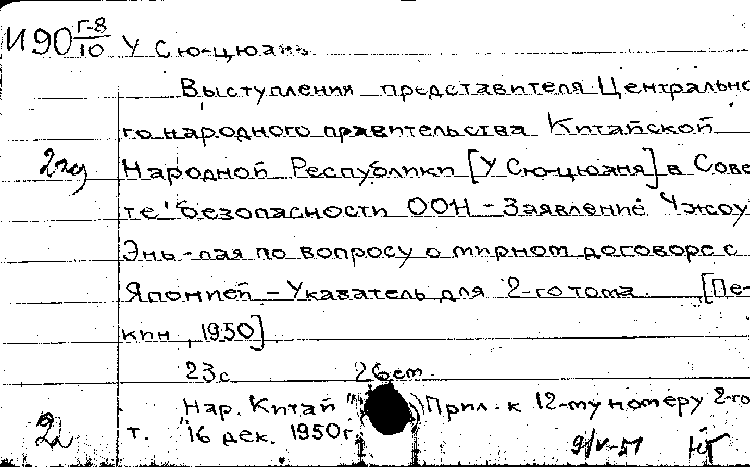 И90 Г-8/10 У Сю-цюань.
Выступления представителя Центрально
го народного правительства Китайской
2 экз Народной Республики [У Сю-цюаня] в Сове
те безопасности ООН - Заявление Чжоу
Энь-лая по вопросу о мирном договоре с
Японией - Указатель для 2-го тома. [Пе-
кин, 1950]
23с. 26 cm.
"Нар. Китай" Прил. к 12-му номеру 2-го
т. 16 дек. 1950г.
9/V-51